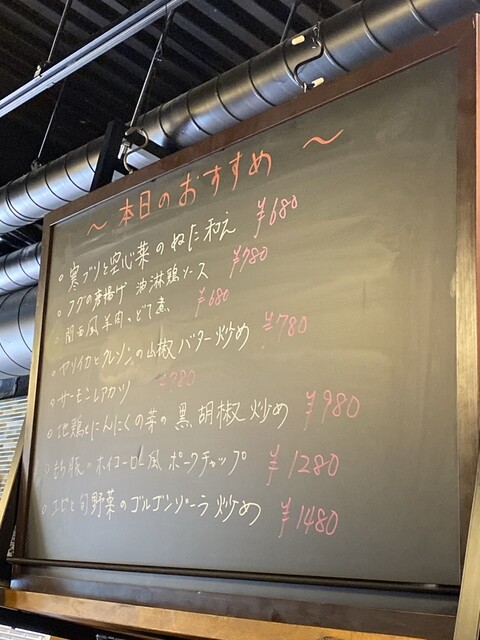 ～本日のおすすめ～
○寒ブリと空心菜のぬた和え ¥680
○フグの唐揚げ 油淋鶏ソース ¥780
○関西風羊肉のどて煮 ¥680
○ヤリイカとクレソンの山椒バター炒め ¥780
○サーモンレアカツ ¥780
○地鶏とにんにくの芽の黒胡椒炒め ¥980
○もち豚のホイコーロー風ポークチャップ ¥1280
○エビと旬野菜のゴルゴンゾーラ炒め ¥1480